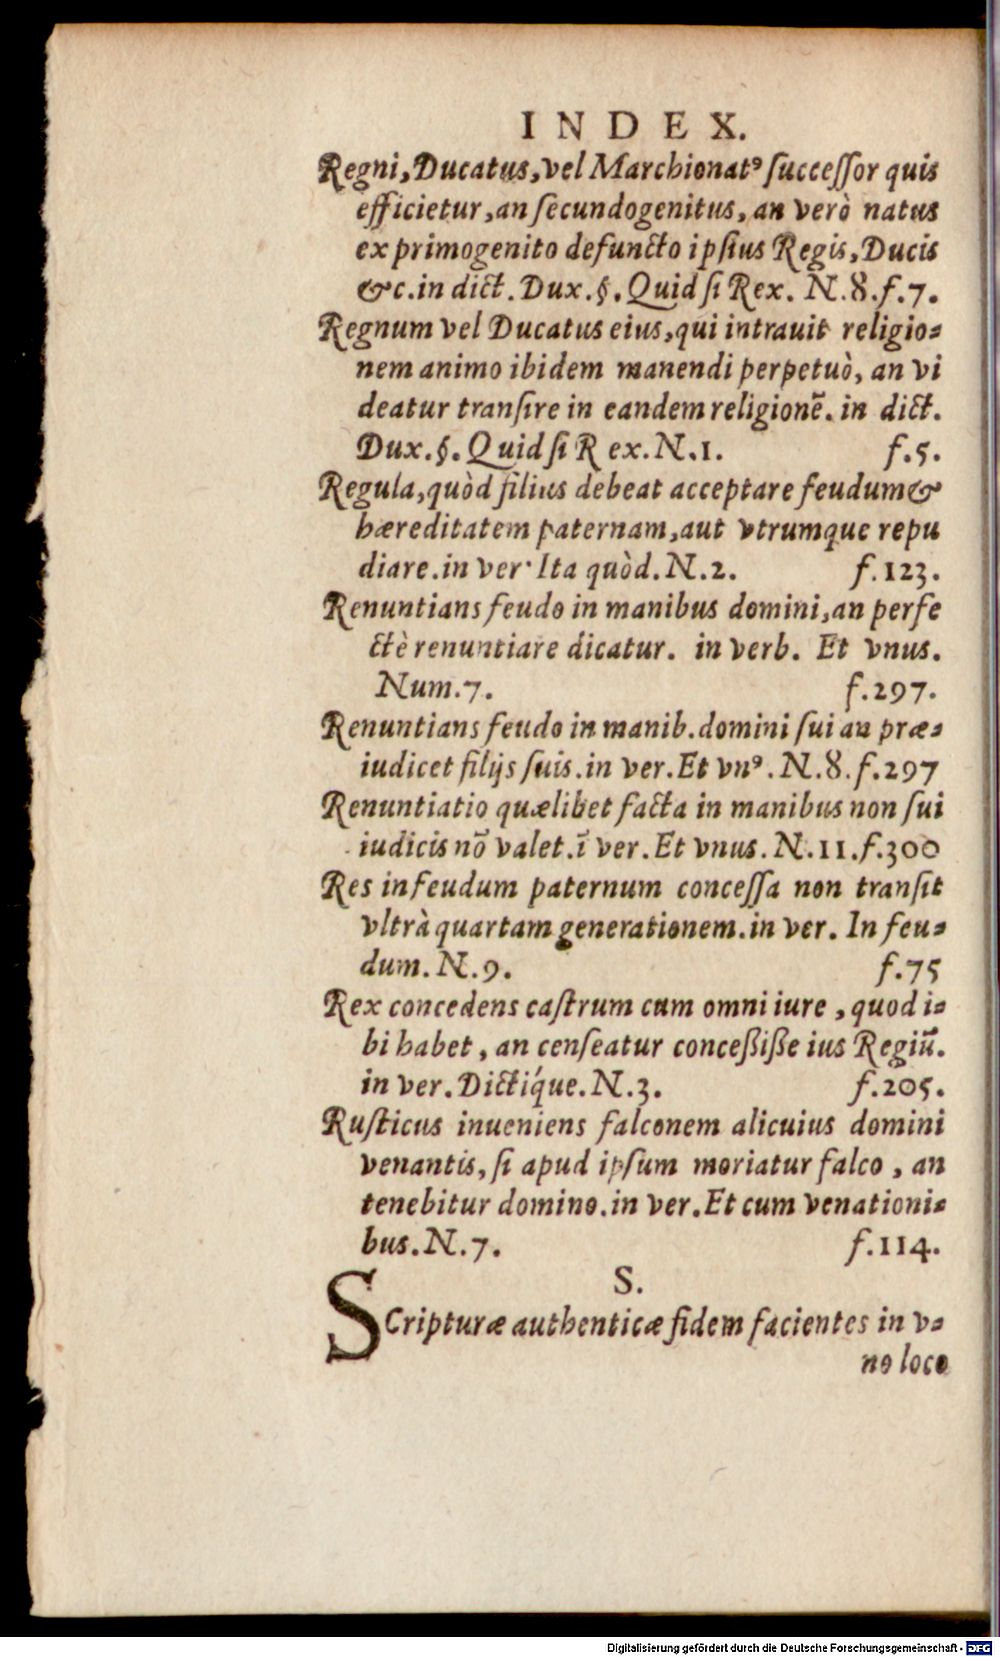 INDEX.
Regni, Ducatus, vel Marchionatꝰ ſucceſſor quis
efficietur, an ſecundogenitus, an verò natus
ex primogenito defuncto ipſius Regis, Ducis
&c. in dict. Dux. §. Quid ſi Rex. N. 8. f. 7.
Regnum vel Ducatus eius, qui intrauit religio-
nem animo ibidem manendi perpetuò, an vi
deatur tranſire in eandem religionẽ. in dict.
Dux. §. Quid ſi Rex. N. 1. f. 5.
Regula, quòd filius debeat acceptare feudum &
hæreditatem paternam, aut vtrumque repu
diare. in ver. Ita quòd. N. 2. f. 123.
Renuntians feudo in manibus domini, an perfe
ctè renuntiare dicatur. in verb. Et vnus.
Num. 7. f. 297.
Renuntians feudo in manib. domini ſui an præ-
iudicet filijs ſuis. in ver. Et vnꝰ. N. 8. f. 297
Renuntiatio quælibet facta in manibus non ſui
iudicis nō valet. ī ver. Et vnus. N. 11. f. 300
Res in feudum paternum conceſſa non tranſit
vltrà quartam generationem. in ver. In feu-
dum. N. 9. f. 75
Rex concedens caſtrum cum omni iure, quod i-
bi habet, an cenſeatur conceßiße ius Regiū.
in ver. Dictiq́ue. N. 3. f. 205.
Ruſticus inueniens falconem alicuius domini
venantis, ſi apud ipſum moriatur falco, an
tenebitur domino. in ver. Et cum venationi-
bus. N. 7. f. 114.
S.
SCripturæ authenticæ fidem facientes in v-
no loco
Digitalisierung gefördert durch die Deutsche Forschungsgemeinschaft - DFG